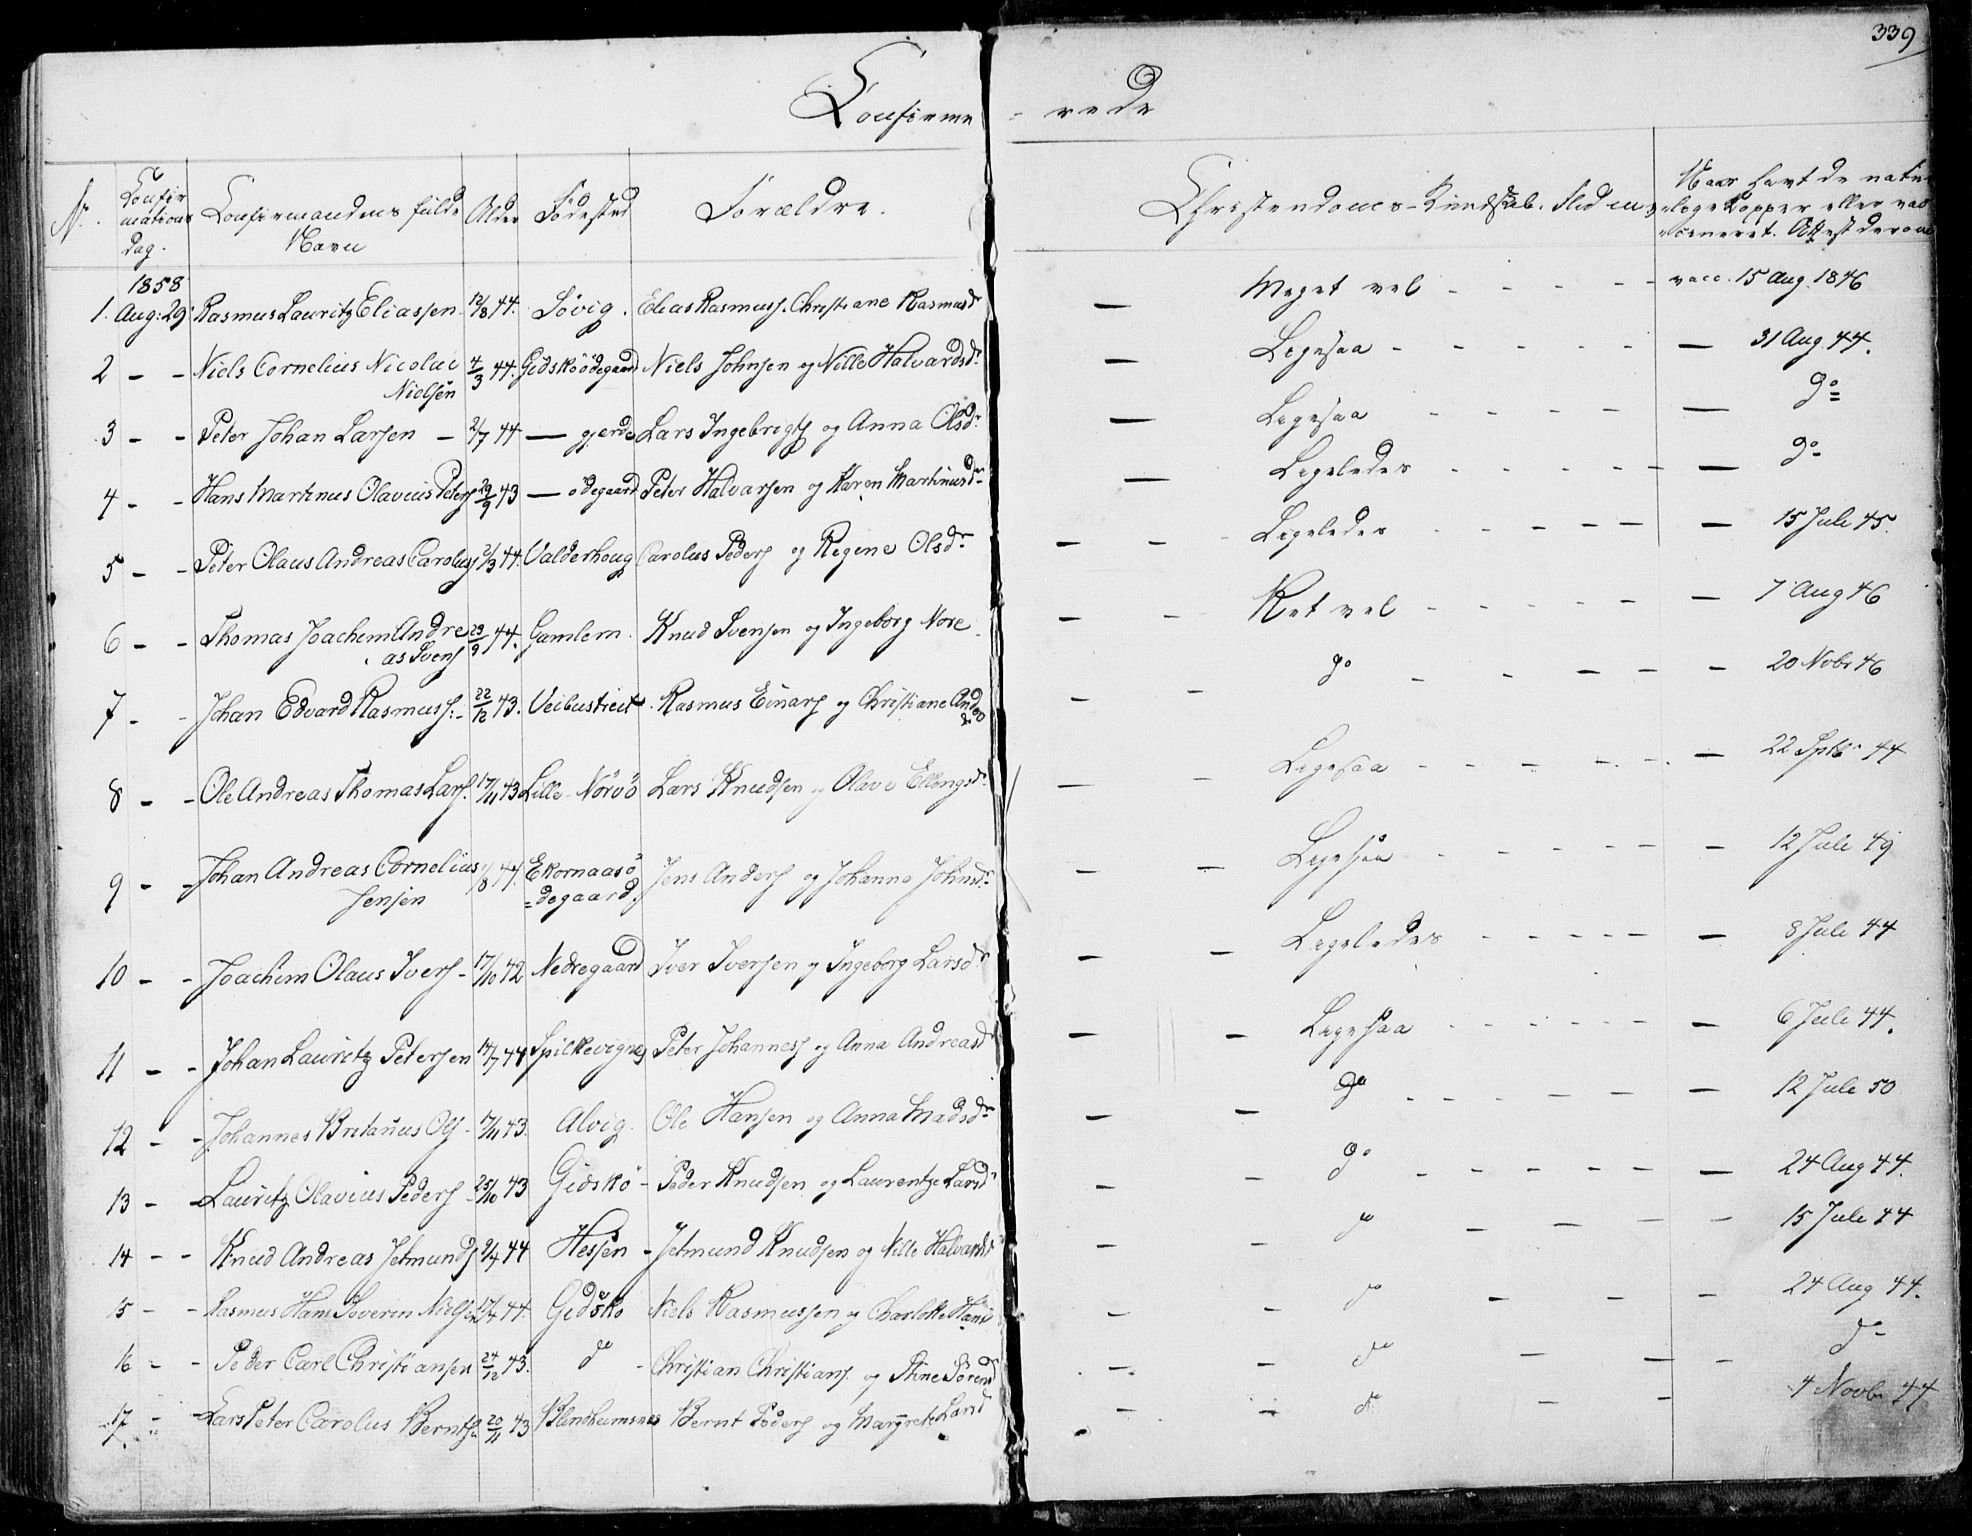 339
Confirme - rede
Nr. Confir mations Dag. Confirmandens fulde Navn Alder Födested Forældre. Christendoms-Kundskab. Flid m. Naar havt de natur- lige Kopper eller vac- cineret. Attest derom
1858
1. Aug. 29 Rasmus Lauritz Eliassen 12/8 44. Sövig. Elias Rasmuss. Christiane Rasmusdr — Meget vel - - - - - vacc. 15 Aug. 1846
2 - - Niels Cornelius Nicolai Nielsen 4/3 44. Gidsköödegaard Niels Johnsen og Nille Halvardsdr — Ligesaa - - - - - — 31 Aug. 44.
3 - - Peter Johan Larsen - 2/7 44 — gjerde Lars Ingebrigts og Anna Olsdr — Ligesaa - - - - — do
4 - - Hans Martinus Olavius Peters 29/9 43 — ödegaard Peter Halvarsen og Karen Martinusdr — Ligeledes - - - - — do
5 - - Peter Olaus Andreas Carolus 2/3 44. Valderhoug Carolus Peders og Regine Olsdr. — - Ligeledes - - - - - — 15 Juli 45.
6 - - Thomas Joachim Andreas Svens 29/9 44. Gamlem. Knud Svensen og Ingeborg Nore — - Ret vel - - - - - — 7 Aug 46
7 - - Johan Edvard Rasmuss. - 22/12 43. Veibustreit Rasmus Einars og Christiane And — - do - - - - — 20 Nobr 46
8 - - Ole Andreas Thomas Lars. 17/11 43 Lille-Nörvö Lars Knudsen og Olave Ellengsdr — - Ligesaa - - - - - — 22 Sptb 44
9 - - Johan Andreas Cornelius Jensen /8 44. Ekornaasö =degaard. Jens Anders og Johanne Johnsdr — - Ligesaa - - - - - — 12 Juli 49
10 - - Joachim Olaus Ivers - 17/10 42 Nedregaard Iver Iversen og Ingeborg Larsdr — - Ligeledes - - - - - — 8 Juli 44
11 - - Johan Lauritz Petersen 14/7 44 Spilkevignes Peter Johanness og Anna Andreasd — - Ligesaa - - - - - — 6 Juli 44.
12 - - Johannes Britanus Ols - 17/11 43. Alvig. Ole Hansen og Anna Madsdr — - do - - - - - — 12 Juli 50
13 - - Lauritz Olavius Peders 25/10 43 Gidskö - Peder Knudsen og Laurentze Larsd — - do - - - - - — 24 Aug 44.
14 - - Knud Andreas Jetmunds 9/4 44 Hessen - Jetmund Knudsen og Nille Halvardsd — - do - - - - 15 Juli 44
15 - - Rasmus Hans Severin Nielsen 44. Gidskö Niels Rasmussen og Charlotte Hansd — - do - - - 24 Aug 44.
16 - - Peder Carl Christiansen 24/12 43. do - Christian Christians. og Stine Sörensd — - do - - - do
17 - - Lars Peter Carolus Bernts. 20/11 43 Blindheimsnes Bernt Peders og Margrete Larsd — - do - - 4 Novbr 44